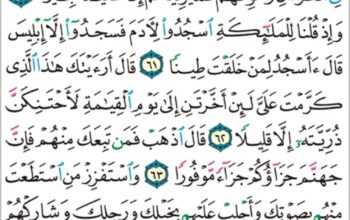 وَإِذْ قُلْنَا لِلْمَلَٰٓئِكَةِ ٱسْجُدُوا۟ لِـَٔادَمَ فَسَجَدُوٓا۟ إِلَّآ إِبْلِيسَ
قَالَ ءَأَسْجُدُ لِمَنْ خَلَقْتَ طِينًا ٦١ قَالَ أَرَءَيْتَكَ هَٰذَا ٱلَّذِى
كَرَّمْتَ عَلَىَّ لَئِنْ أَخَّرْتَنِ إِلَىٰ يَوْمِ ٱلْقِيَٰمَةِ لَأَحْتَنِكَنَّ
ذُرِّيَّتَهُۥٓ إِلَّا قَلِيلًا ٦٢ قَالَ ٱذْهَبْ فَمَن تَبِعَكَ مِنْهُمْ فَإِنَّ
جَهَنَّمَ جَزَآؤُكُمْ جَزَآءً مَّوْفُورًا ٦٣ وَٱسْتَفْزِزْ مَنِ ٱسْتَطَعْتَ
مِنْهُم بِصَوْتِكَ وَأَجْلِبْ عَلَيْهِم بِخَيْلِكَ وَرَجِلِكَ وَشَارِكْهُمْ